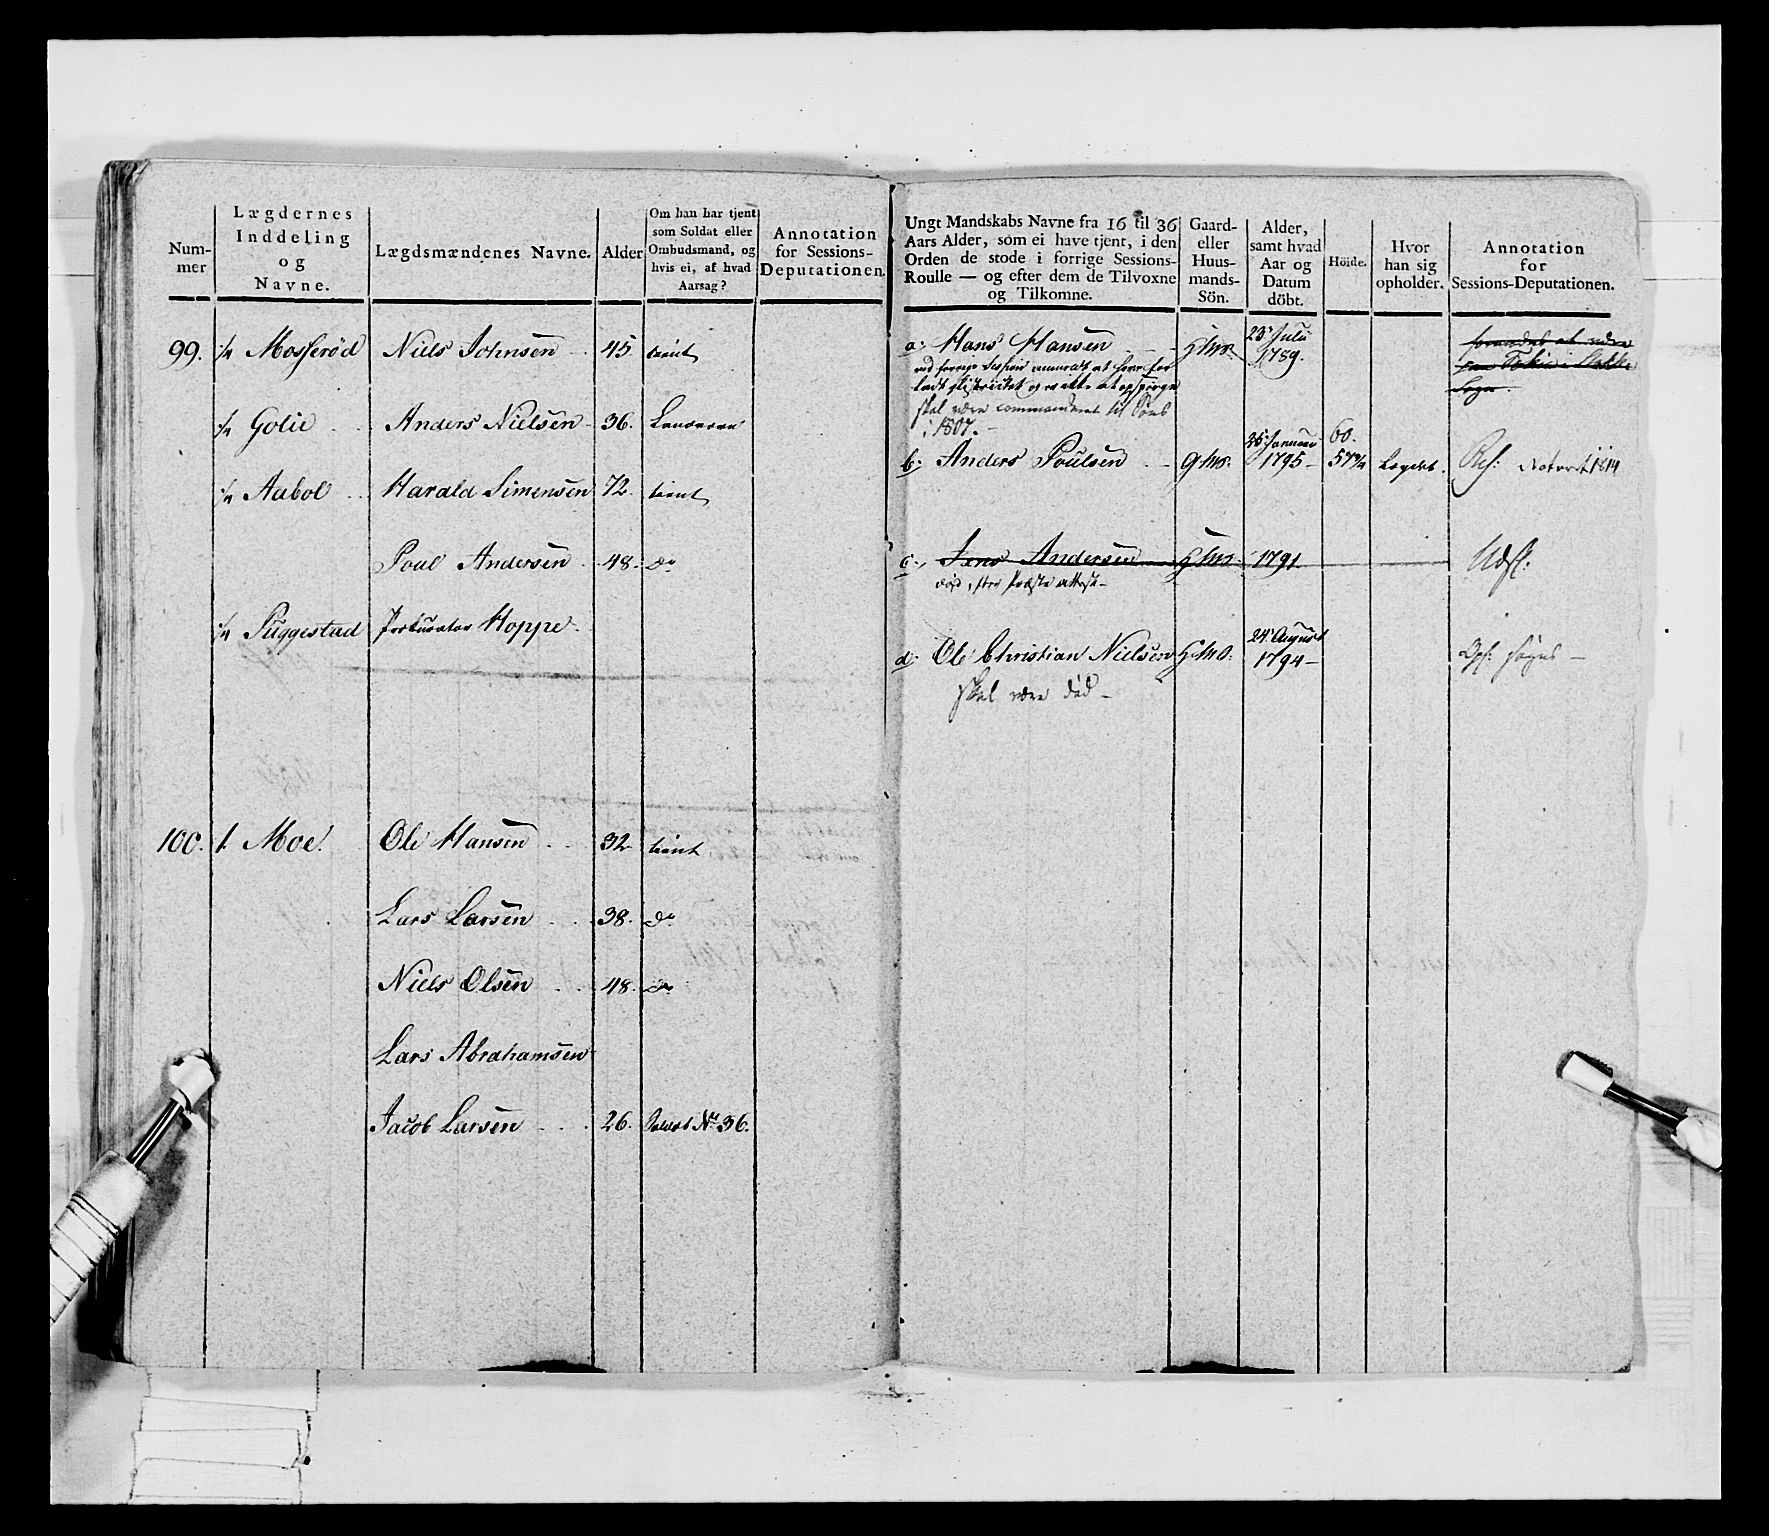 Num-
mer
Lægdernes
Inddeling
og
Navne.
Lægdsmændenes Navne.
Alder
Om han har tjent
som Soldat eller
Ombudsmand, og
hvis ei, af hvad
Aarsag?
Annotation
for Sessions-
Deputationen.
99. Mosserød Niels Johnsen 45. tient
Golie Anders Nielsen 36.
Aabol Harald Simensen 72. tient
Poul Andersen 48. do
Puggestad Prokurator Hoppe
100. 1. Moe. Ole Hansen 32 tient
Lars Larsen 38. do
Niels Olsen 48. do
Lars Abrahamsen
Jacob Larsen 26. Soldat No 36.
Ungt Mandskabs Navne fra 16 til 36
Aars Alder, som ei have tjent, i den
Orden de stode i forrige Sessions-
Roulle — og efter dem de Tilvoxne
og Tilkomne.
Gaard-
eller
Huus-
mands-
Sön.
Alder,
samt hvad
Aar og
Datum
döbt.
Höide.
Hvor
han sig
opholder.
Annotation
for
Sessions-Deputationen.
a. Hans Hansen 23 Julii
1789.
skal være commanderet til Søes
i 1807.
b. Anders Poulsen 25 Januar
1795 60.
57¾ Lægdet. 1814
c. Jens Andersen 1791
død, efter Præste attest
d. Ole Christian Nielsen 24 August
1794
skal være død